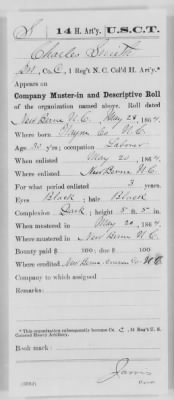 S 14 H. Art'y. U.S.C.T.
Charles Smith
Pvt., Co. C, 1 Reg't N. C. Col'd H. Art'y.*
Appears on
Company Muster-in and Descriptive Roll
of the organization named above. Roll dated
New Berne N.C. May 28, 1864.
Where born Wayne Co. N.C.
Age 20 y'rs; occupation Laborer
When enlisted May 20, 1864.
Where enlisted New Berne N.C.
For what period enlisted 3 years.
Eyes Black; hair Black
Complexion Dark; height 5 ft. 5 in.
When mustered in May 20, 1864.
Where mustered in New Berne N.C.
Bounty paid $ 100; due $ 100
Where credited New Berne Craven Co. N.C.
Company to which assigned
Remarks:
* This organization subsequently became Co. C, 14 Reg't U.S. Colored Heavy Artillery.
Book mark:
Jarvis